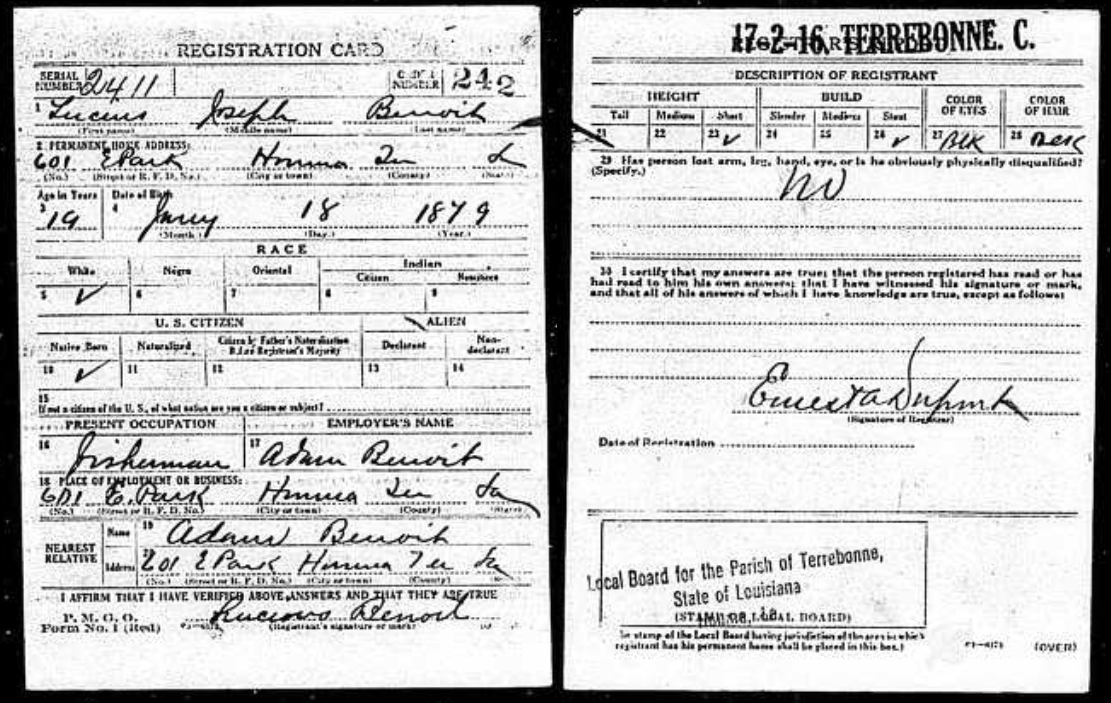 REGISTRATION CARD
SERIAL NUMBER 2411 ORDER NUMBER 242
1 Lucius Joseph Benoit
(First name) (Middle name) (Last name)
2 PERMANENT HOME ADDRESS:
601 E Park Houma Ter La
(No.) (Street or R. F. D. No.) (City or town) (County) (State)
Age in Years Date of Birth
3 19 4 Jany 18 1879
(Month.) (Day.) (Year.)
RACE
White Negro Oriental Indian
Citizen Noncitizen
5 ✓ 6 7 8 9
U. S. CITIZEN ALIEN
Native Born Naturalized Citizen by Father's Naturalization Before Registrant's Majority Declarant Non-declarant
10 ✓ 11 12 13 14
15
If not a citizen of the U. S., of what nation are you a citizen or subject?
PRESENT OCCUPATION EMPLOYER'S NAME
16 Fisherman 17 Adam Benoit
18 PLACE OF EMPLOYMENT OR BUSINESS:
601 E. Park Houma Ter La
(No.) (Street or R. F. D. No.) (City or town) (County) (State)
NEAREST RELATIVE Name 19 Adam Benoit
Address 20 601 E Park Houma Ter La
(No.) (Street or R. F. D. No.) (City or town) (County)
I AFFIRM THAT I HAVE VERIFIED ABOVE ANSWERS AND THAT THEY ARE TRUE
P. M. G. O.
Form No. 1 (Red) Lucious Benoit
(Registrant's signature or mark)
17-2-16, TERREBONNE. C.
DESCRIPTION OF REGISTRANT
HEIGHT BUILD COLOR OF EYES COLOR OF HAIR
Tall Medium Short Slender Medium Stout
21 22 23 ✓ 24 25 26 ✓ 27 Blk 28 Black
29 Has person lost arm, leg, hand, eye, or is he obviously physically disqualified?
(Specify.) No
30 I certify that my answers are true; that the person registered has read or has
had read to him his own answers; that I have witnessed his signature or mark,
and that all of his answers of which I have knowledge are true, except as follows:
Ernest A Dupont
(Signature of Registrar)
Date of Registration
Local Board for the Parish of Terrebonne,
State of Louisiana
(STAMP OF LOCAL BOARD)
The stamp of the Local Board having jurisdiction of the area in which
registrant has his permanent home shall be placed in this box.)
(OVER)